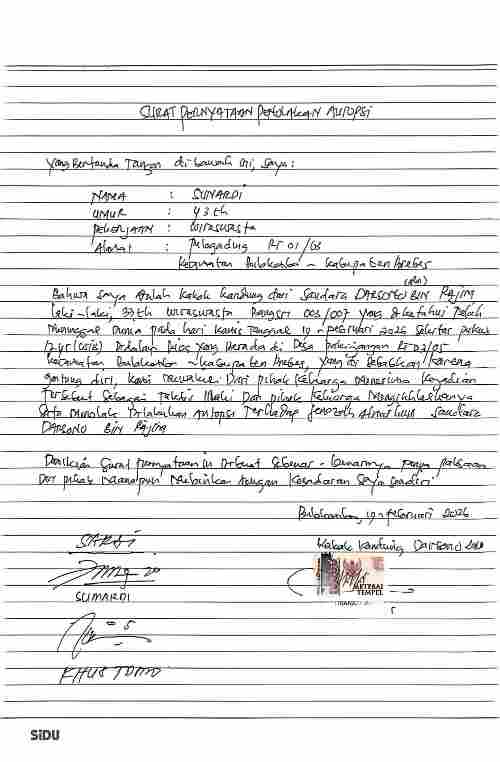 SURAT PERNYATAAN PENOLAKAN AUTOPSI
Yang Bertanda Tangan di bawah ini, saya:
NAMA : SUNARDI
UMUR : 43 th
PEKERJAAN : WIRASWASTA
Alamat : Rt 01/03
Kecamatan Bulakamba ~ Kabupaten Brebes
Bahwa saya adalah kakak kandung dari saudara DARSONO BIN RAJIM (alm)
laki-laki, 37th wiraswasta, 003/007 yang diketahui telah
meninggal dunia pada hari Kamis tanggal 19 - Februari 2026 sekitar pukul
(WIB) Didalam yang berada di Desa RT 03/05
Kecamatan Bulakamba ~ Kabupaten Brebes, yang di sebabkan karena
gantung diri, kami Dari pihak keluarga menerima kejadian
tersebut sebagai takdir Dan pihak keluarga mengikhlaskannya
Serta menolak Dilakukan Autopsi Terhadap jenazah Almarhum saudara
DARSONO BIN RAJIM
Demikian surat pernyataan ini Dibuat sebenar-benarnya tanpa paksaan
Dari pihak manapun melainkan dengan kesadaran saya sendiri
Bulakamba, 19 - Februari 2026
SARDI
Kakak Kandung Darsono
METERAI
TEMPEL
SUMARDI
SiDU